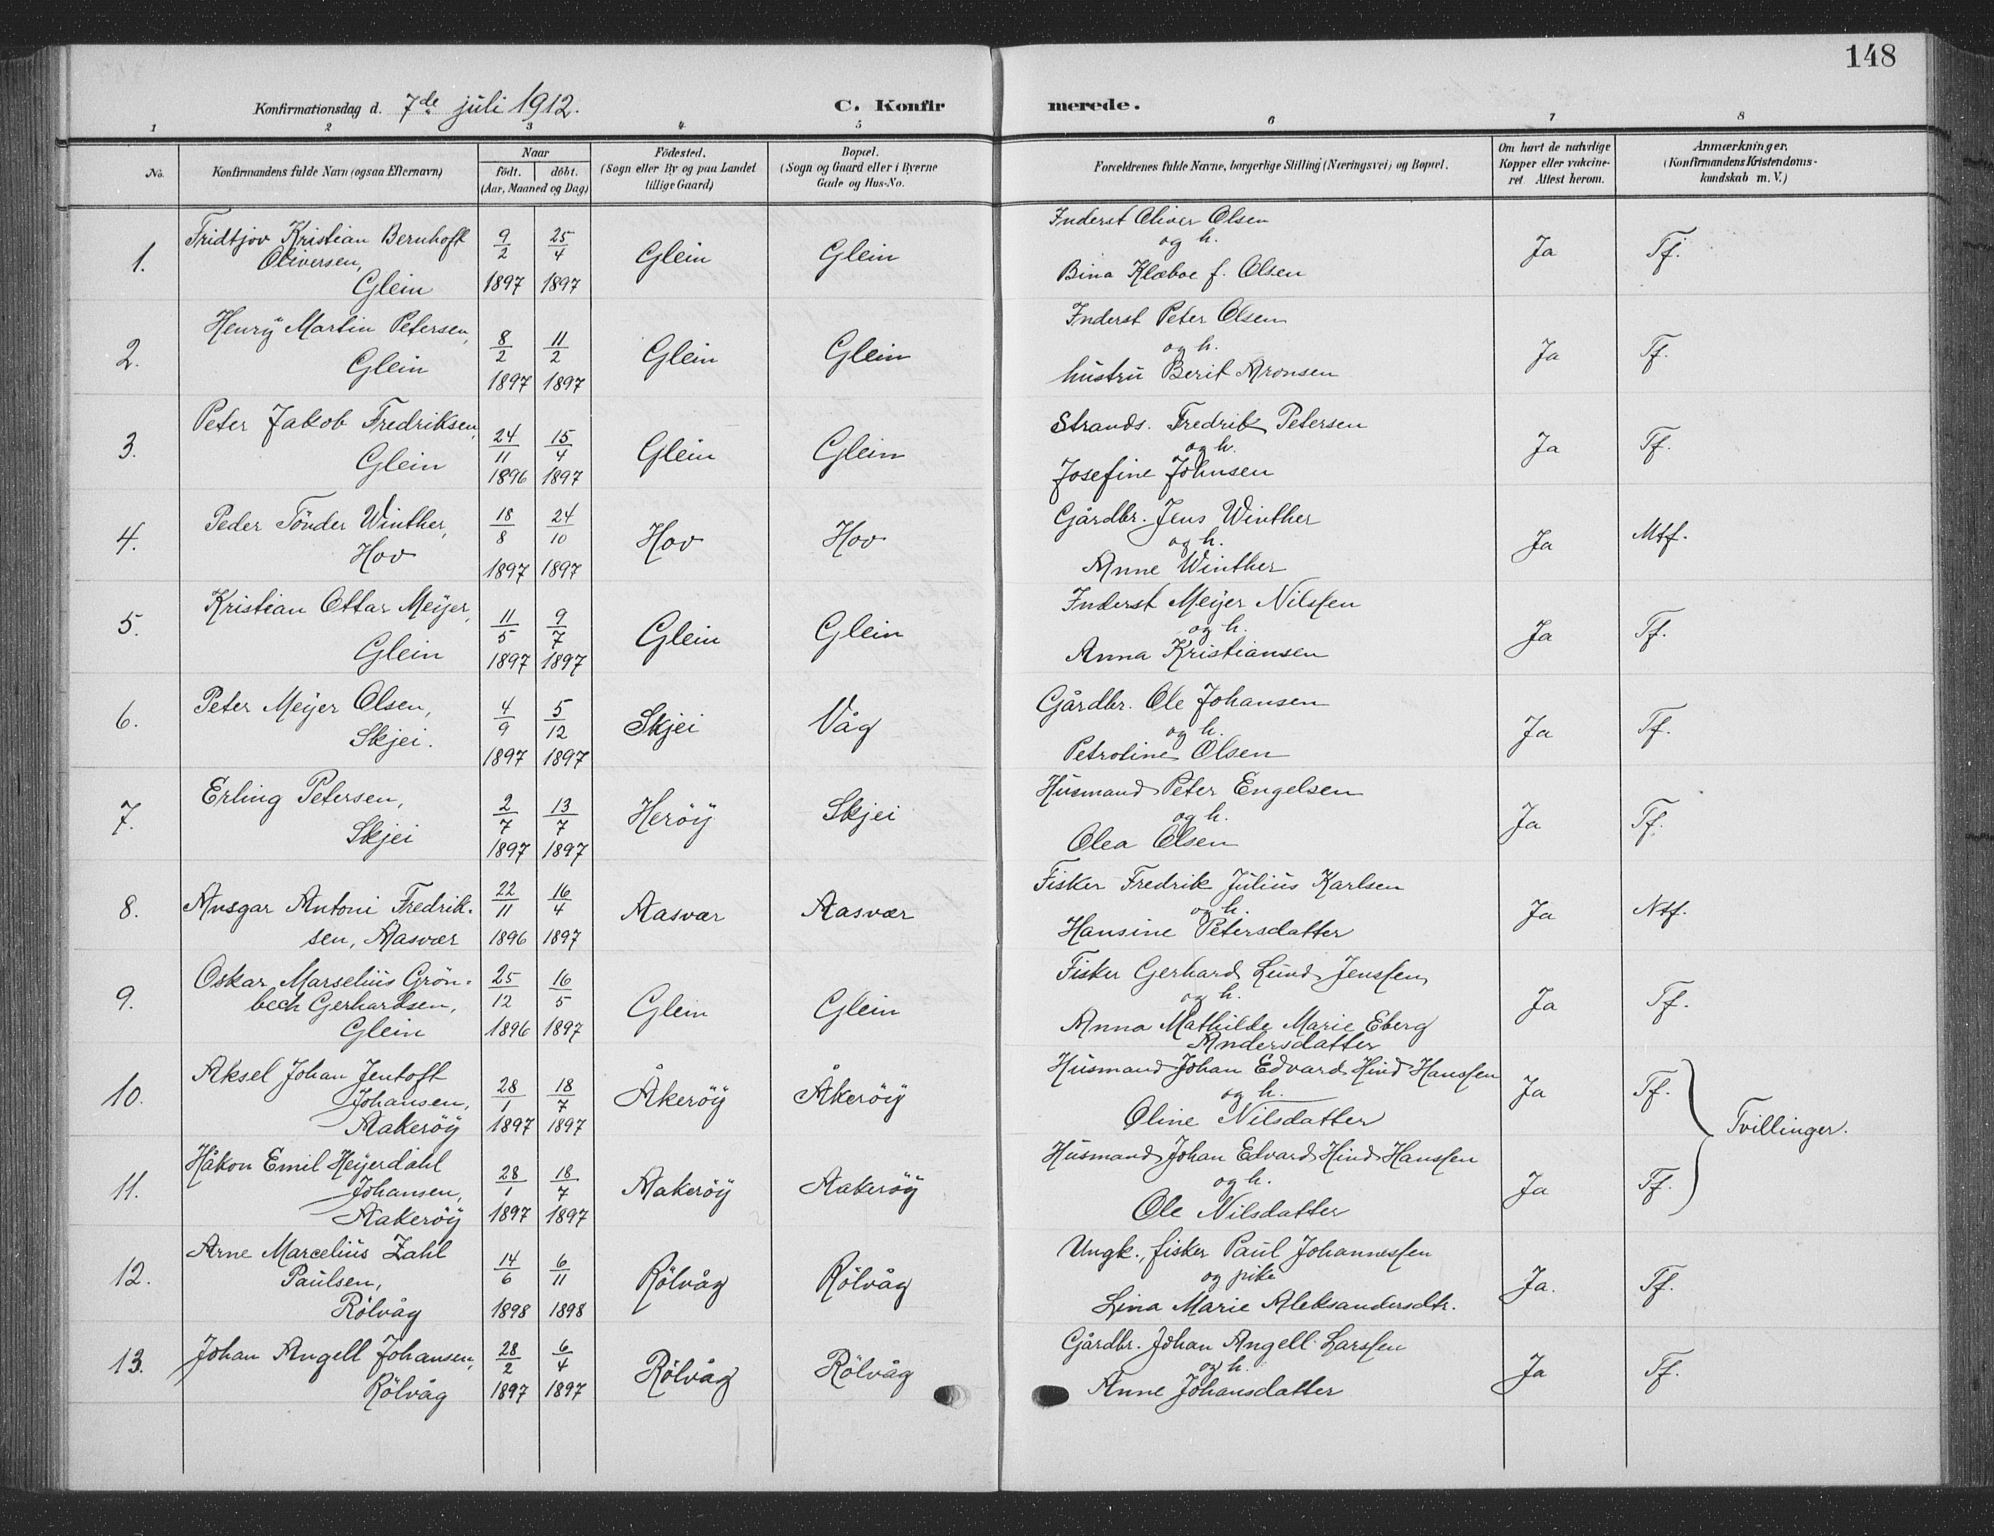 148
Konfirmationsdag d. 7de juli 1912.
C. Konfirmerede.
1 2 3 4 5 6 7 8
No.
Konfirmandens fulde Navn (ogsaa Efternavn)
Naar
födt. döbt.
(Aar, Maaned og Dag)
Födested.
(Sogn eller By og paa Landet
tillige Gaard)
Bopæl.
(Sogn og Gaard eller i Byerne
Gade og Hus-No.
Forældrenes fulde Navne, borgerlige Stilling (Næringsvei) og Bopæl.
Om havt de naturlige
Kopper eller vakcine-
ret Attest herom.
Anmærkninger.
(Konfirmandens Kristendoms-
kundskab m. V.)
1. Fridtjov Kristian Bernhoft
Oliversen,
Glein
9/2 1897 25/4 1897 Glein Glein
Inderst Oliver Olsen
og h.
Bina Klæboe f. Olsen
Ja Tf.
2. Henry Martin Petersen,
Glein
8/2 1897 11/2 1897 Glein Glein
Inderst Peter Olsen
og h.
hustru Berit Aronsen
Ja Tf.
3. Peter Jakob Fredriksen,
Glein
24/11 1896 15/4 1897 Glein Glein
Strands. Fredrik Petersen
og h.
Josefine Johnsen
Ja Tf.
4. Peder Tönder Winther,
Hov
18/8 1897 24/10 1897 Hov Hov
Gårdbr. Jens Winther
og h.
Anne Winther
Ja Mtf.
5. Kristian Ottar Meijer,
Glein
11/5 1897 9/7 1897 Glein Glein
Inderst Meijer Nilssen
og h.
Anna Kristiansen
Ja Tf.
6. Peter Meijer Olsen,
Skjei.
4/9 1897 5/12 1897 Skjei Våg
Gårdbr. Ole Johansen
og h.
Petroline Olsen
Ja Tf.
7. Erling Petersen,
Skjei
2/7 1897 13/7 1897 Heröy Skjei
Husmand Peter Engelsen
og h.
Olea Olsen
Ja Tf.
8. Ansgar Antoni Fredrik-
sen, Aasvær
22/11 1896 16/4 1897 Aasvær Aasvær
Fisker Fredrik Julius Karlsen
og h.
Hansine Petersdatter
Ja Ntf.
9. Oskar Marselius Grön-
bech Gerhardsen,
Glein
25/12 1896 16/5 1897 Glein Glein
Fisker Gerhard Lund Jenssen
og h.
Anna Mathilde Marie Eberg
Andersdatter
Ja Tf.
10. Aksel Johan Jentoft
Johansen,
Aakeröy
28/1 1897 18/7 1897 Åkeröy Åkeröy
Husmand Johan Edvard Hind Hanssen
og h.
Oline Nilsdatter
Ja Tf.
Tvillinger.
11. Håkon Emil Heijerdahl
Johansen,
Aakeröy
28/1 1897 18/7 1897 Aakeröy Aakeröy
Husmand Johan Edvard Hind Hanssen
og h.
Ole Nilsdatter
Ja Tf.
12. Arne Marcelius Zahl
Paulsen,
Rölvåg
14/6 1898 6/11 1898 Rölvåg Rölvåg
Ungk., fisker Paul Johannessen
og pike
Lina Marie Aleksandersdtr.
Ja. Tf.
13. Johan Angell Johansen,
Rölvåg
28/2 1897 6/4 1897 Rölvåg Rölvåg
Gårdbr. Johan Angell Larssen
og h.
Anne Johansdatter
Ja Tf.